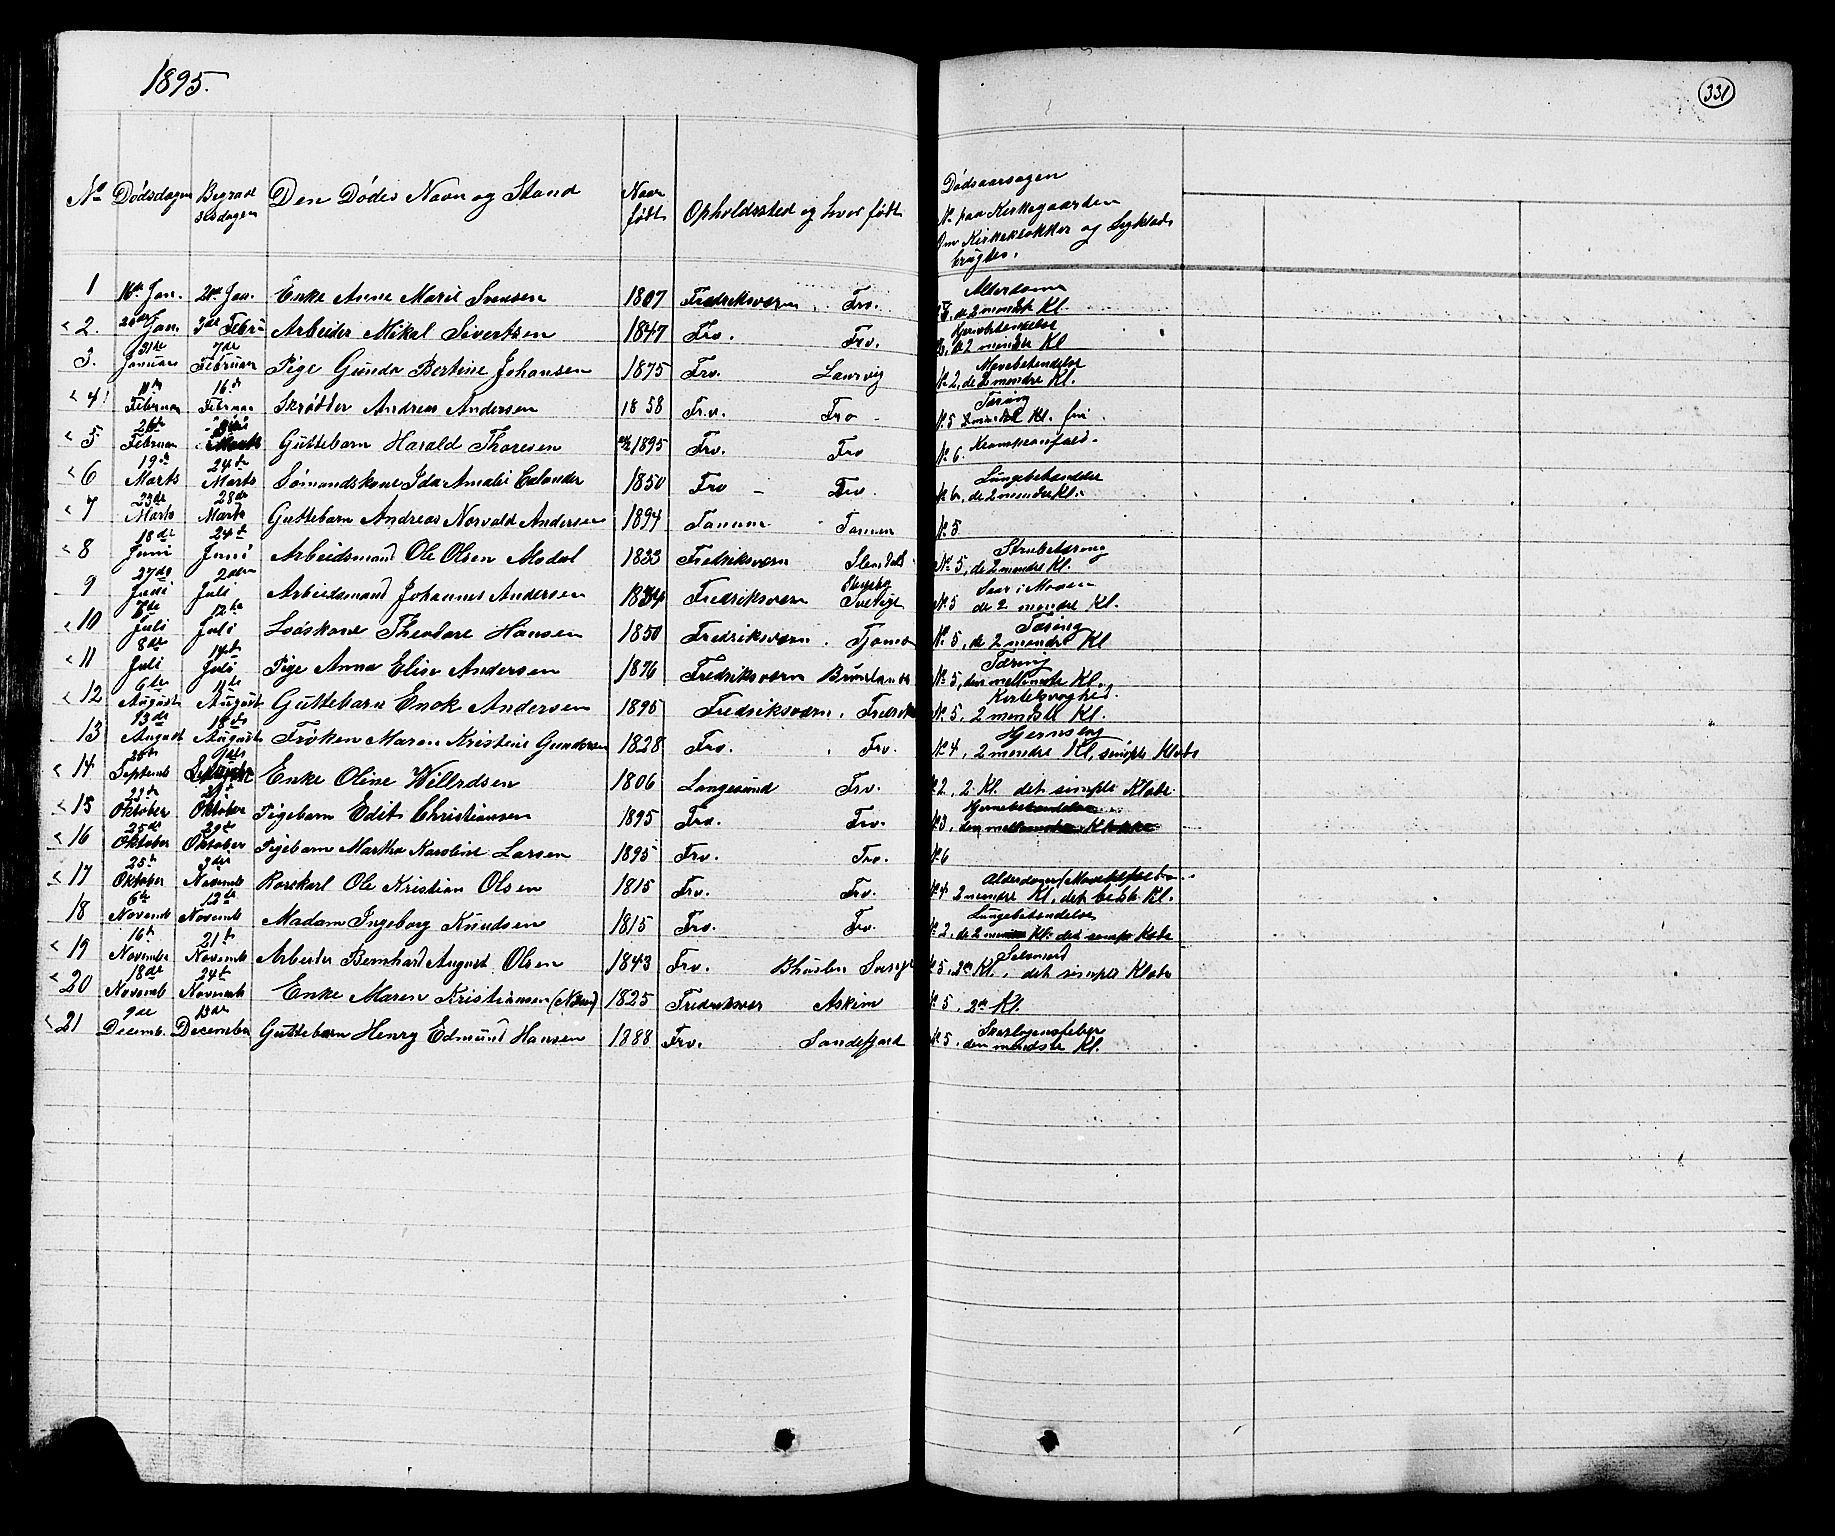 1895.
331
No Dødsdagen Begravelsesdagen Den Dødes Navn og Stand Naar født Opholdssted og hvor født
Dødsaarsagen
No paa Kirkegaarden
Om Kirkeklokker og
brugtes.
1 16de Jan. 21de Jan. Enke Anne Marie Svensen 1807 Fredriksværn Frv. Alderdom
de 2 mendste Kl.
2. Jan. 3de Febru Arbeider Mikal Sivertsen 1847 Frv. Frv.
2 mendste Kl
3. 31de Januar 7de Februar Pige Gunda Bertine Johansen 1875 Frv. Laurvig Mavebetendelse
No 2, de 2 mendre Kl.
4 11te Februar 16de Februar Skrædder Andreas Andersen 1858 Frv. Frv. Tæring
No 5 Kl.
5 26de Februar Marts Guttebarn Harald Thoresen 1895 Frv. Frv Krampeanfald.
No 6.
6 19de Marts 24de Marts Sømandskone Ida Amalie Calander 1850 Frv Frv. Lungebetendelse
No 6, de 2 mendre Kl.
7 23de Marts 28de Marts Guttebarn Andreas Norvald Andersen 1894 Tanum Tanum
No 5
8 18de Juni 24de Juni Arbeidsmand Ole Olsen Modal 1833 Fredriksværn Slemdal Strubetæring
No 5, de 2 mendre Kl.
9 27de Juni 2den Juli Arbeidsmand Johannes Andersen 1834 Fredriksværn Sverige Saar i Maven
No 5 de 2 mendre Kl.
10 7de Juli 12te Juli Loskone Theodore Hansen 1850 Fredriksværn. Tjømø Tæring
No 5, de 2 mendre Kl
11 8de Juli 14de Juli Pige Anna Elise Andersen 1876 Fredriksværn Brunlanæs Tæring
No 5, den mellemste Kl.
12 6te August 11te August Guttebarn Enok Andersen 1895 Fredriksværn. Fredriks Kirtelsvaghed.
No 5, 2 mendste Kl.
13 13de August 18de August Frøken Maren Kristine Gundersen 1828 Frv. Frv. Hjerneslag
No 4, 2 mendre Kl, simple Klæde
14 Septemb Enke Oline Willrdsen 1806 Langesund Frv.
No 2, 2 Kl. det simple Klæde.
15 Oktober Oktober Pigebarn Edit Christiansen 1895 Frv. Frv. Hjernebetændelse
No 3, den mellemste Klokke
16 25de Oktober 29de Oktober Pigebarn Martha Karoline Larsen 1895 Frv. Frv.
No 6
17 25de Oktober 3die Novemb Rorskarl Ole Kristian Olsen 1815 Frv. Frv.
No 4 2 mendre Kl, det bedste Kl.
18 6te Novemb 12te Novemb Madam Ingeborg Knudsen 1815 Frv. Frv. Lungebetendelse
No 2, de 2 mendre Kl. det simple Klæde
19 16de Novembe 21de Novemb Arbeider Bernhard August Olsen 1843 Frv. Sverige Selvmord
No 5, 2de Kl., det simple Klæde
20 18de Novemb 24de Novemb Enke Maren Kristiansen 1825 Fredriksvær Askim
No 5, 2de Kl.
21 9de Decemb. 13de December Guttebarn Henry Edmund Hansen 1888 Frv. Sandefjord Skarlagensfeber
No 5, den mendste Kl.